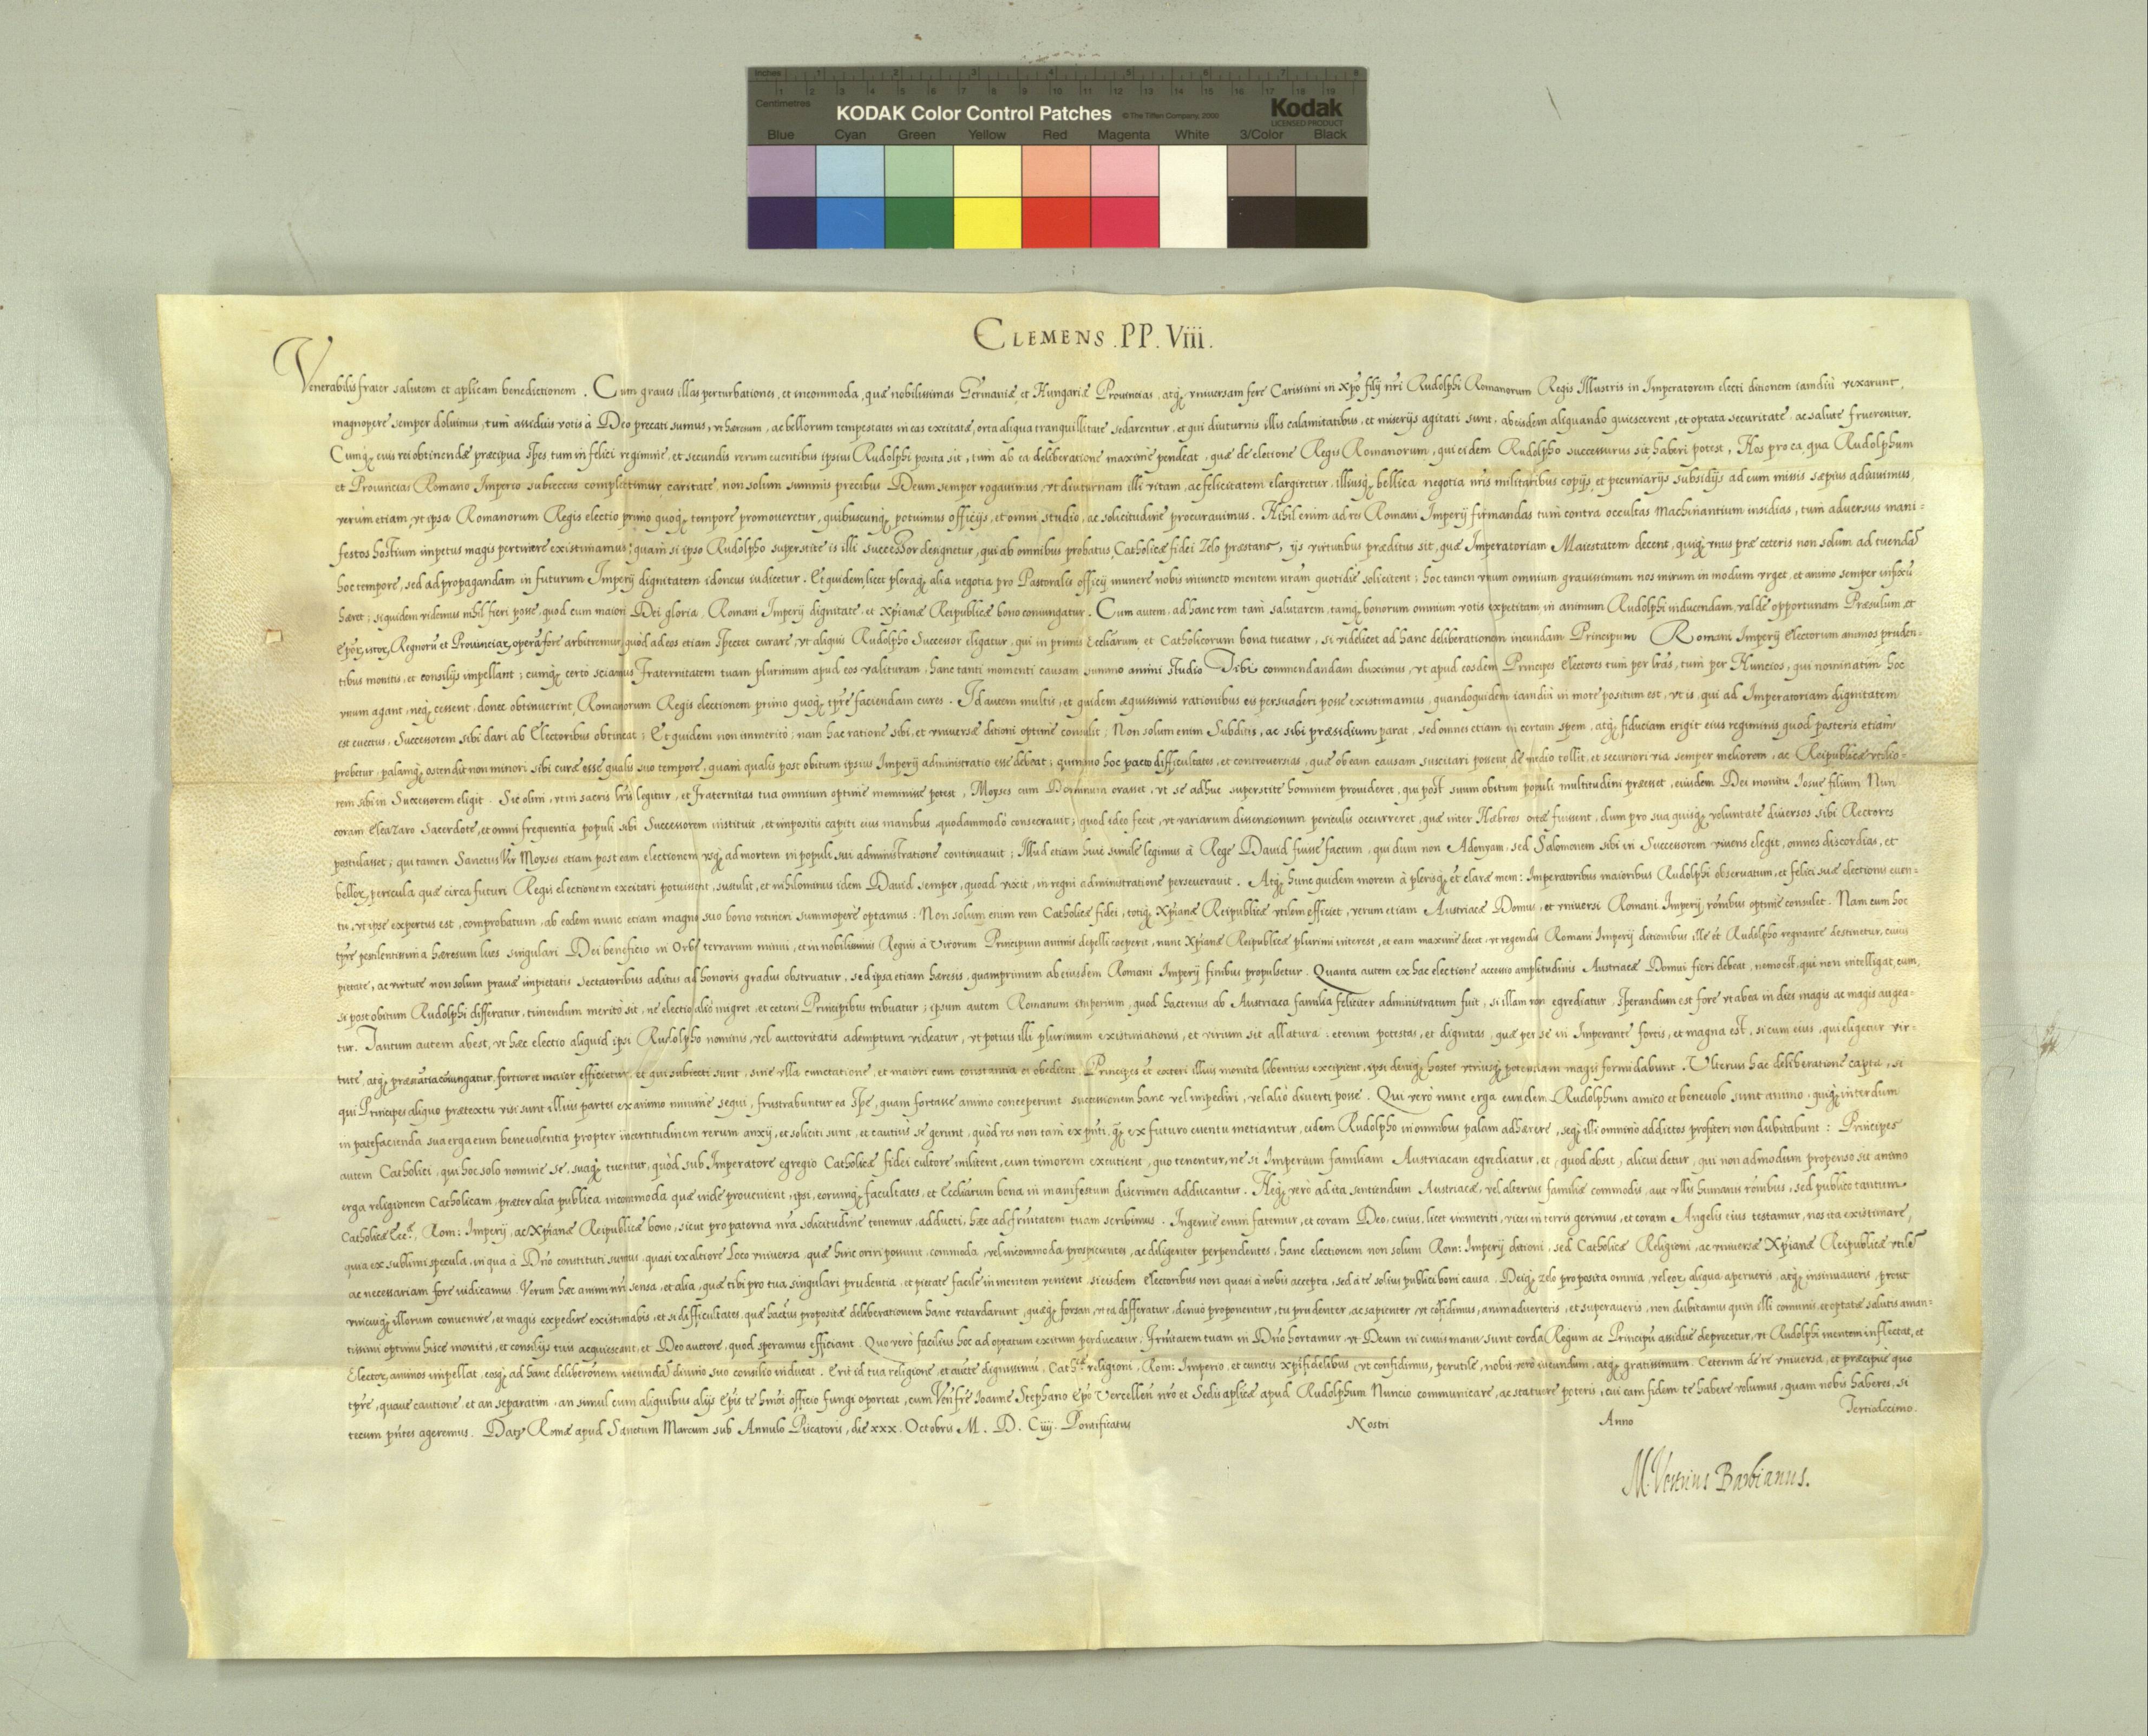 Inches 1 2 3 4 5 6 7 8
1 2 3 4 5 6 7 8 9 10 11 12 13 14 15 16 17 18 19
Centimetres
KODAK Color Control Patches © The Tiffen Company, 2000 Kodak
LICENSED PRODUCT
Blue Cyan Green Yellow Red Magenta White 3/Color Black
CLEMENS . PP . Viii .
Venerabilis frater salutem et aplicam benedictionem . Cum graues illas perturbationes, et incommoda, quæ nobilissimas Germaniæ, et Hungariæ Prouincias, atq; vniuersam fere Carissimi in xpo filij nri Rudolphi Romanorum Regis Illustris in Imperatorem electi ditionem iamdiu vexarunt,
magnopere semper doluimus, tum assiduis votis à Deo precati sumus, vt hæresum, ac bellorum tempestates in eas excitatæ, orta aliqua tranquillitate sedarentur, et qui diuturnis illis calamitatibus, et miserijs agitati sunt, ab eisdem aliquando quiescerent, et optata securitate, ac salute fruerentur.
Cumq; eius rei obtinendæ præcipua spes tum in felici regimine, et secundis rerum euentibus ipsius Rudolphi posita sit, tum ab ea deliberatione maxime pendeat, quæ de electione Regis Romanorum, qui eidem Rudolpho successurus sit, haberi potest, Nos pro ea, qua Rudolphum
et Prouincias Romano Imperio subiectas complectimur caritate, non solum summis precibus Deum semper rogauimus, vt diuturnam illi vitam, ac felicitatem elargiretur, illiusq; bellica negotia nris militaribus copijs, et pecuniarijs subsidijs ad eum missis sæpius adiuuimus,
verum etiam, vt ipsa Romanorum Regis electio primo quoq; tempore promoueretur, quibuscunq; potuimus officijs, et omni studio, ac solicitudine procurauimus. Nihil enim ad res Romani Imperij firmandas tum contra occultas machinantium insidias, tum aduersus mani-
festos hostium impetus magis pertinere existimamus, quam si ipso Rudolpho superstite is illi successor designetur, qui ab omnibus probatus, Catholicæ fidei zelo præstans, ijs virtutibus præditus sit, quæ Imperatoriam Maiestatem decent, quiq; vnus præ ceteris non solum ad tuendã
hoc tempore, sed ad propagandam in futurum Imperij dignitatem idoneus iudicetur. Et quidem, licet pleraq; alia negotia pro Pastoralis officij munere nobis iniuncto mentem nram quotidie solicitent; hoc tamen vnum omnium grauissimum nos mirum in modum vrget, et animo semper infixũ
hæret; siquidem videmus nihil fieri posse, quod cum maiori Dei gloria, Romani Imperij dignitate, et Xpianæ Reipublicæ bono coniungatur. Cum autem, ad hanc rem tam salutarem, tamq; bonorum omnium votis expetitam, in animum Rudolphi inducendam, valde opportunam Præsulum, et
Regnorũ et Prouinciar, operã fore arbitremur, quòd ad eos etiam spectet curare, vt aliquis Rudolpho Successor eligatur, qui in primis Eccliarum, et Catholicorum bona tueatur, si videlicet ad hanc deliberationem ineundam Principum Romani Imperij Electorum animos pruden-
tibus monitis, et consilijs impellant; cumq; certo sciamus Fraternitatem tuam plurimum apud eos valituram, hanc tanti momenti causam summo animi studio Tibi commendandam duximus, vt apud eosdem Principes Electores tum per lras, tum per Nuncios, qui nominatim hoc
vnum agant, neq; cessent, donec obtinuerint, Romanorum Regis electionem primo quoq; tpre faciendam cures. Id autem multis, et quidem æquissimis rationibus eis persuaderi posse existimamus, quandoquidem iamdiu in more positum est, vt is, qui ad Imperatoriam dignitatem
est euectus, Successorem sibi dari ab Electoribus obtineat; Et quidem non immerito; nam hac ratione sibi, et vniuersæ ditioni optime consulit; Non solum enim Subditis, ac sibi præsidium parat, sed omnes etiam in certam spem, atq; fiduciam erigit eius regiminis quod posteris etiam
probetur, palamq; ostendit non minori sibi curæ esse qualis suo tempore, quam qualis post obitum ipsius Imperij administratio esse debeat; quinimo hoc pacto difficultates, et controuersias, quæ ob eam causam suscitari possent, de medio tollit, et securiori via semper meliorem, ac Reipublicæ vtilio-
rem sibi in Successorem eligit. Sic olim, vt in sacris lris legitur, et fraternitas tua omnium optime meminisse potest, Moyses cum Dominum orasset, vt se adhuc superstite hominem prouideret, qui post suum obitum populi multitudini præesset, eiusdem Dei monitu Iosue filium Nun
coram Eleazaro Sacerdote, et omni frequentia populi sibi Successorem instituit, et impositis capiti eius manibus quodammodo consecrauit; quod ideo fecit, vt variarum dissensionum periculis occurreret, quæ inter Hæbreos ortæ fuissent, dum pro sua quisq; voluntate diuersos sibi Rectores
postulasset; qui tamen Sanctus Vir Moyses etiam post eam electionem vsq; ad mortem in populi sui administratione continuauit; Illud etiam huic simile legimus à Rege Dauid fuisse factum, qui dum non Adonyam, sed Salomonem sibi in Successorem viuens elegit, omnes discordias, et
bellor, pericula, quæ circa futuri Regis electionem excitari potuissent, sustulit, et nihilominus idem Dauid semper, quoad vixit, in regni administratione perseuerauit. Atq; hunc quidem morem à plerisq; et claræ mem: Imperatoribus maioribus Rudolphi obseruatum, et felici suæ electionis euen-
tu, vt ipse expertus est, comprobatum, ab eodem nunc etiam magno suo bono retineri summopere optamus. Non solum enim rem Catholicæ fidei, totiq; Xpianæ Reipublicæ vtilem efficiet, verum etiam Austriacæ Domus, et vniuersi Romani Imperij rõnibus optime consulet. Nam cum hoc
tpre pestilentissima hæresum lues singulari Dei beneficio in Orbe terrarum minui, et in nobilissimis Regnis à virorum Principum animis depelli coeperit, nunc Xpianæ Reipublicæ plurimi interest, et eam maxime decet, vt regendis Romani Imperij ditionibus ille et Rudolpho regnante destinetur, cuius
pietate, ac virtute non solum prauæ impietatis Sectatoribus aditus ad honoris gradus obstruatur, sed ipsa etiam hæresis, quamprimum ab eiusdem Romani Imperij finibus propulsetur. Quanta autem ex hac electione accessio amplitudinis Austriacæ Domui fieri debeat, nemo est, qui non intelligat, cum,
si post obitum Rudolphi differatur, timendum merito sit, ne electio alio migret, et ceteris Principibus tribuatur; ipsum autem Romanum imperium, quod hactenus ab Austriaca familia feliciter administratum fuit, si illam non egrediatur, sperandum est fore vt ab ea in dies magis ac magis augea-
tur. Tantum autem abest, vt hæc electio aliquid ipsi Rudolpho nominis, vel auctoritatis ademptura videatur, vt potius illi plurimum existimationis, et virium sit allatura: etenim potestas, et dignitas, quæ per se in Imperante fortis, et magna est, si cum eius, qui eligetur vir-
tute, atq; coniungatur, fortior et maior efficietur, et qui subiecti sunt, sine vlla cunctatione, et maiori cum constantia ei obedient. Principes et exteri illius monita libentius excipient, ipsi deniq; hostes vtriusq; potentiam magis formidabunt. Vlterius hac deliberatione capta, si
qui Principes aliquo prætextu visi sunt illius partes ex animo minime sequi, frustrabuntur ea spe, quam fortasse animo conceperunt successionem hanc vel impediri, vel alio diuerti posse. Qui vero nunc erga eundem Rudolphum amico et beneuolo sunt animo, quiq; interdum
in patefacienda sua erga eum beneuolentia propter incertitudinem rerum anxij, et soliciti sunt, et cautius se gerunt, quòd res non tam ex pnti, q; ex futuro euentu metiantur, eidem Rudolpho in omnibus palam adhærere, seq; illi omnino addictos profiteri non dubitabunt: Principes
autem Catholici, qui hoc solo nomine se, suaq; tuentur, quòd sub Imperatore egregio Catholicæ fidei cultore militent, eum timorem excutient, quo tenentur, ne si Imperium familiam Austriacam egrediatur, et, quod absit, alicui detur, qui non admodum propenso sit animo
erga religionem Catholicam, præter alia publica incommoda quæ inde prouenient, ipsi, eorumq; facultates, et Eccliarum bona in manifestum discrimen adducantur. Neq; vero ad ita sentiendum Austriacæ, vel alterius familiæ commodis, aut vllis humanis rõnibus, sed publico tantum
Catholicæ Eccæ, Rom: Imperij, ac Xpianæ Reipublicæ bono, sicut pro paterna nra solicitudine tenemur, adducti, hæc ad frnitatem tuam scribimus. Ingenue enim fatemur, et coram Deo, cuius, licet immeriti, vices in terris gerimus, et coram Angelis eius testamur, nos ita existimare,
quia ex sublimi specula, in qua à Dno constituti sumus, quasi ex altiore loco vniuersa, quæ hinc oriri possunt, commoda, vel incommoda prospicientes, ac diligenter perpendentes, hanc electionem non solum Rom: Imperij ditioni, sed Catholicæ Religioni, ac vniuersæ Xpianæ Reipublicæ vtilẽ
ac necessariam fore iudicamus. Verum hæc animi nri sensa, et alia, quæ tibi pro tua singulari prudentia, et pietate facile in mentem venient, si eisdem Electoribus non quasi à nobis accepta, sed à te solius publici boni causa, Deiq; zelo proposita omnia, vel eor, aliqua aperueris, atq; insinuaveris, prout
vnicuiq; illorum conuenire, et magis expedire existimabis, et si difficultates, quæ hactus propositæ deliberationem hanc retardarunt, quæq; forsan, vt ea differatur, denuo proponentur, tu prudenter, ac sapienter, vt cõfidimus, animaduerteris, et superaueris, non dubitamus quin illi comunis, et optatæ salutis aman-
tissimi optimis hisce monitis, et consilijs tuis acquiescant, et Deo auctore, quod speramus efficiant. Quo vero facilius hoc ad optatum exitum perducatur, frnitatem tuam in Dno hortamur, vt Deum in cuius manu sunt corda Regum ac Principũ assidue deprecetur, vt Rudolphi mentem inflectat, et
Elector, animos impellat, eosq; ad hanc deliberõnem ineundã diuino suo consilio inducat. Erit id tua religione, et auctte dignissimum, Cathcæ religioni, Rom: Imperio, et cunctis xpifidelibus, vt confidimus, perutile, nobis vero iucundum, atq; gratissimum. Ceterum de re vniuersa, et præcipue quo
tpre, quaue cautione, et an separatim, an simul cum aliquibus alijs Epis te hmoi officio fungi oporteat, cum Ven fre Ioanne Stephano Epo Vercellen nro et Sedis aplicæ apud Rudolphum Nuncio communicare, ac statuere poteris, cui eam fidem te habere volumus, quam nobis haberes, si
tecum pntes ageremus. Dat Romæ apud Sanctum Marcum sub Annulo Piscatoris, die xxx. Octobris M. D. Ciiij. Pontificatus Nostri Anno Tertiodecimo.
M. Vestrius Barbianus.